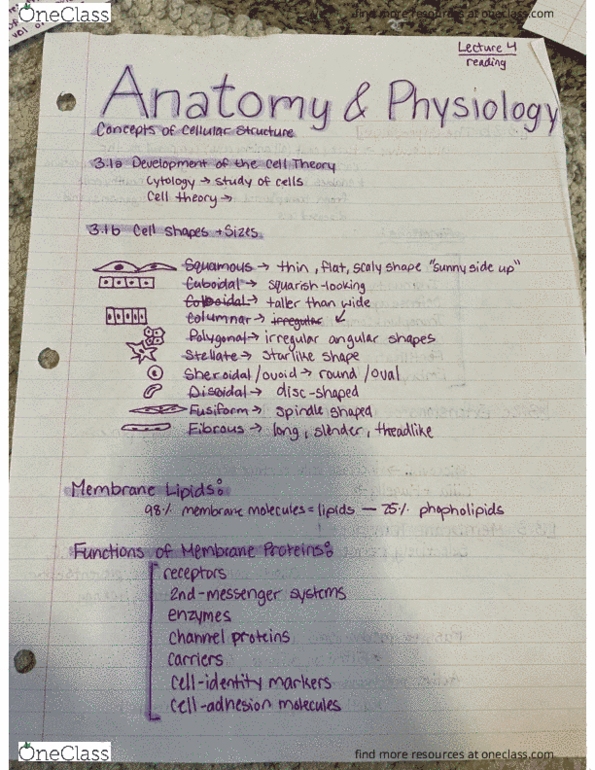 OneClass
find more resources at oneclass.com
Lecture 4
reading
Anatomy & Physiology
Concepts of Cellular Structure
3.1a Development of the Cell Theory
Cytology → study of cells
Cell theory →
3.1b Cell Shapes + Sizes
Squamous → thin, flat, scaly shape "sunny side up"
Cuboidal → squarish-looking
Colboidal → taller than wide
Columnar → irregular ↙
Polygonal → irregular angular shapes
Stellate → starlike shape
Sheroidal/ovoid → round/oval
Discoidal → disc-shaped
Fusiform → spindle shaped
Fibrous → long, slender, theadlike
Membrane Lipids:
98% membrane molecules = lipids — 75% phopholipids
Functions of Membrane Proteins:
receptors
2nd-messenger systems
enzymes
channel proteins
carriers
cell-identity markers
cell-adhesion molecules
OneClass
find more resources at oneclass.com